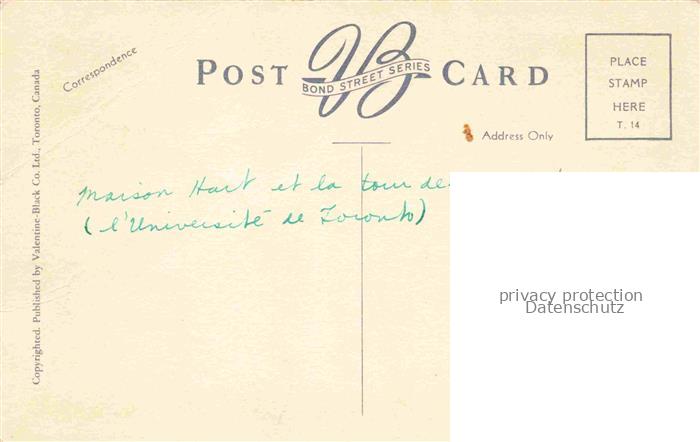 POST CARD
VB
BOND STREET SERIES
Correspondence
Address Only
PLACE
STAMP
HERE
T. 14
Copyrighted. Published by Valentine-Black Co. Ltd., Toronto, Canada
Maison Hart et la tour de
(l'Université de Toronto)
privacy protection
Datenschutz